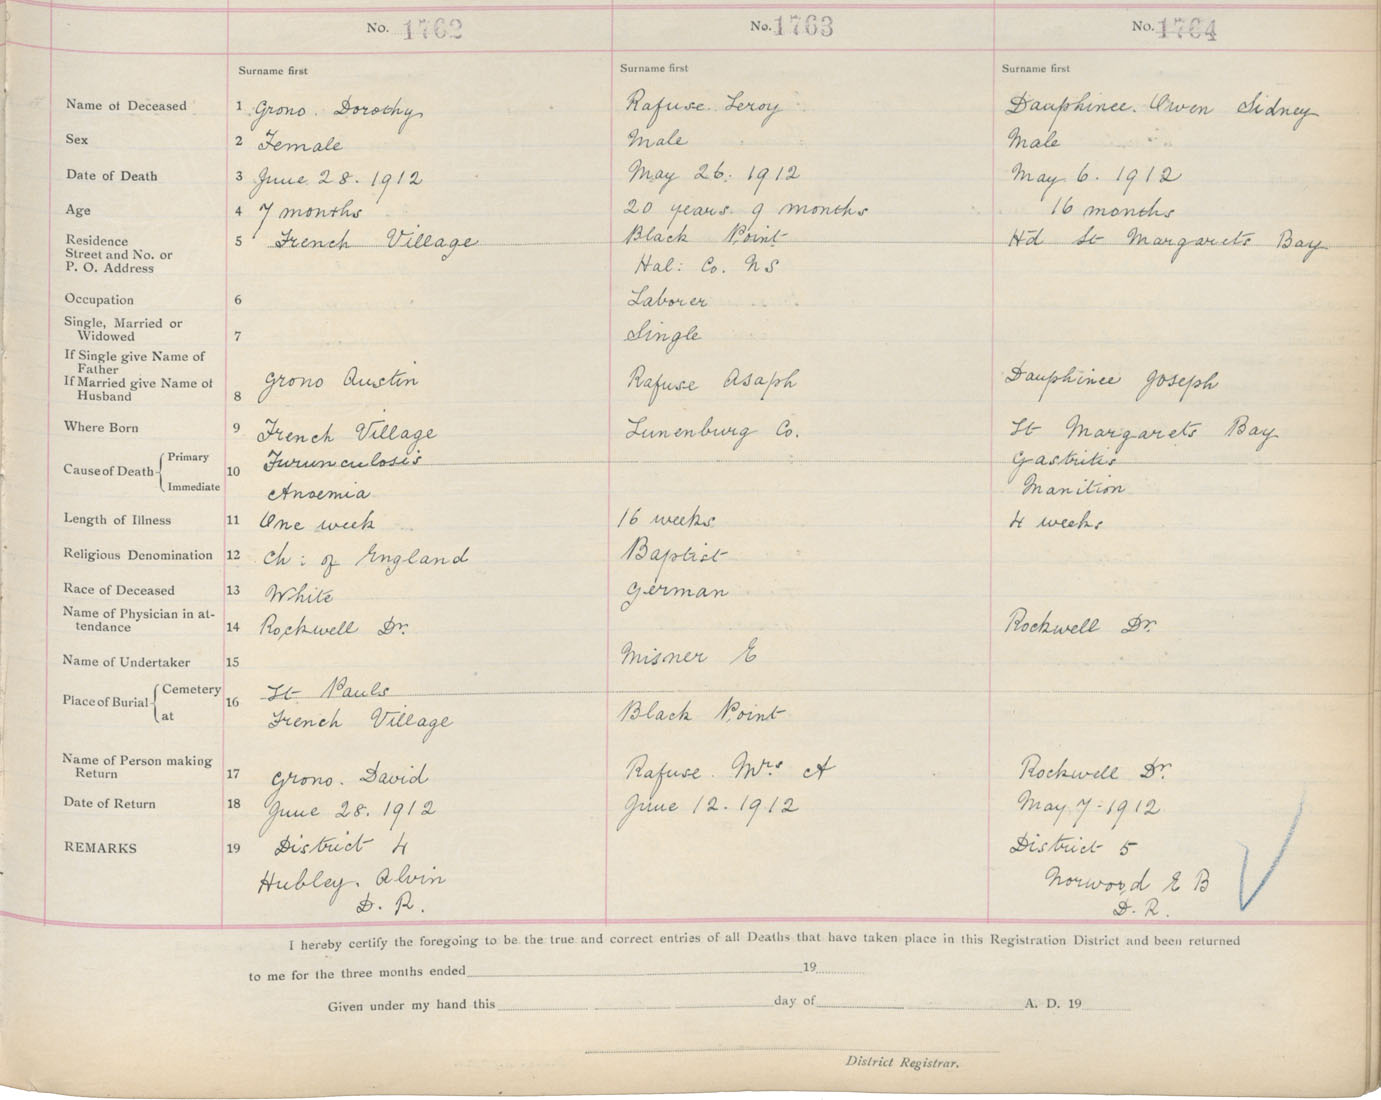 No. 1762 No. 1763 No. 1764
Surname first Surname first Surname first
Name of Deceased 1 Grono. Dorothy Rafuse. Leroy Dauphinee. Owen Sidney
Sex 2 Female Male Male
Date of Death 3 June 28. 1912 May 26. 1912 May 6. 1912
Age 4 7 months 20 years 9 months 16 months
Residence 5 French Village Black Point Hd St Margarets Bay
Street and No. or
P. O. Address Hal: Co. NS
Occupation 6 Laborer
Single, Married or
Widowed 7 Single
If Single give Name of
Father
If Married give Name of Grono Austin Rafuse Asaph Dauphinee Joseph
Husband 8
Where Born 9 French Village Lunenburg Co. St Margarets Bay
Cause of Death Primary 10 Furunculosis Gastritis
Immediate Anoemia Manition
Length of Illness 11 One week 16 weeks 4 weeks
Religious Denomination 12 Ch: of England Baptist
Race of Deceased 13 White German
Name of Physician in at-
tendance 14 Rockwell Dr. Rockwell Dr.
Name of Undertaker 15 Misner E
Place of Burial Cemetery 16 St Pauls
at French Village Black Point
Name of Person making
Return 17 Grono. David Rafuse. Mrs A Rockwell Dr.
Date of Return 18 June 28. 1912 June 12. 1912 May 7. 1912
REMARKS 19 District 4 District 5
Hubley. Alvin Norwood E B
D. R. D. R.
I hereby certify the foregoing to be the true and correct entries of all Deaths that have taken place in this Registration District and been returned
to me for the three months ended 19
Given under my hand this day of A. D. 19
District Registrar.